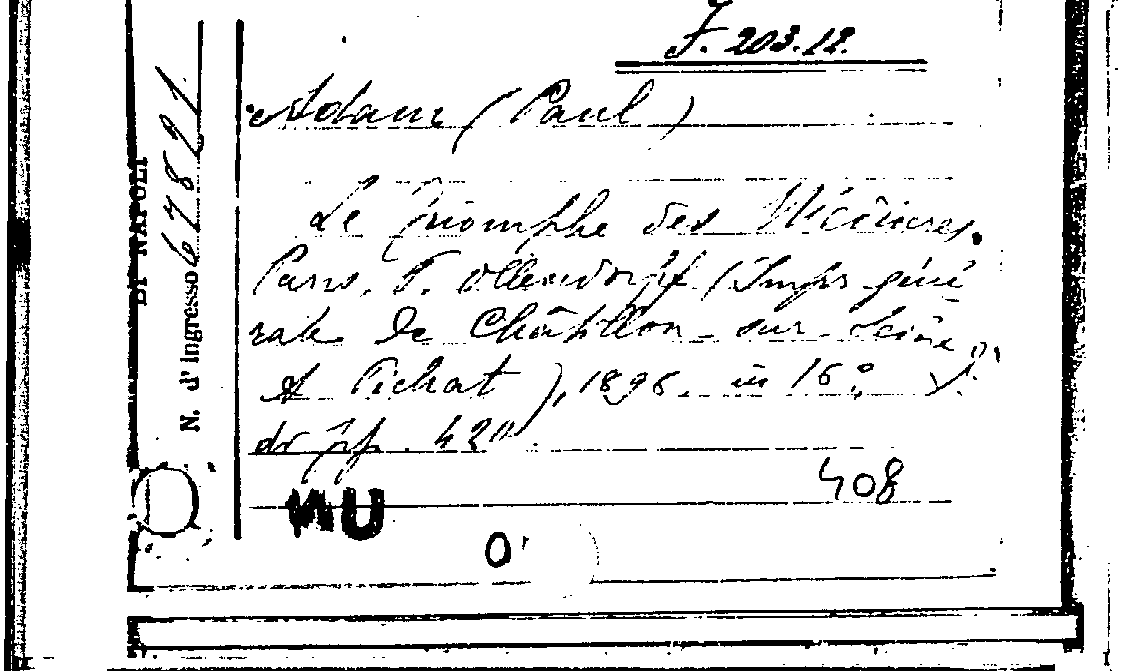 F. 203.12.
Adam (Paul)
Le Triomphe des Médiocres.
Paris, P. Ollendorff (Impr. géné
rale de Châtillon-sur-Seine
A. Pichat), 1898. in 16°.
di pp. 420.
408
NU
0
DI NAPOLI
N. d'Ingresso 67821